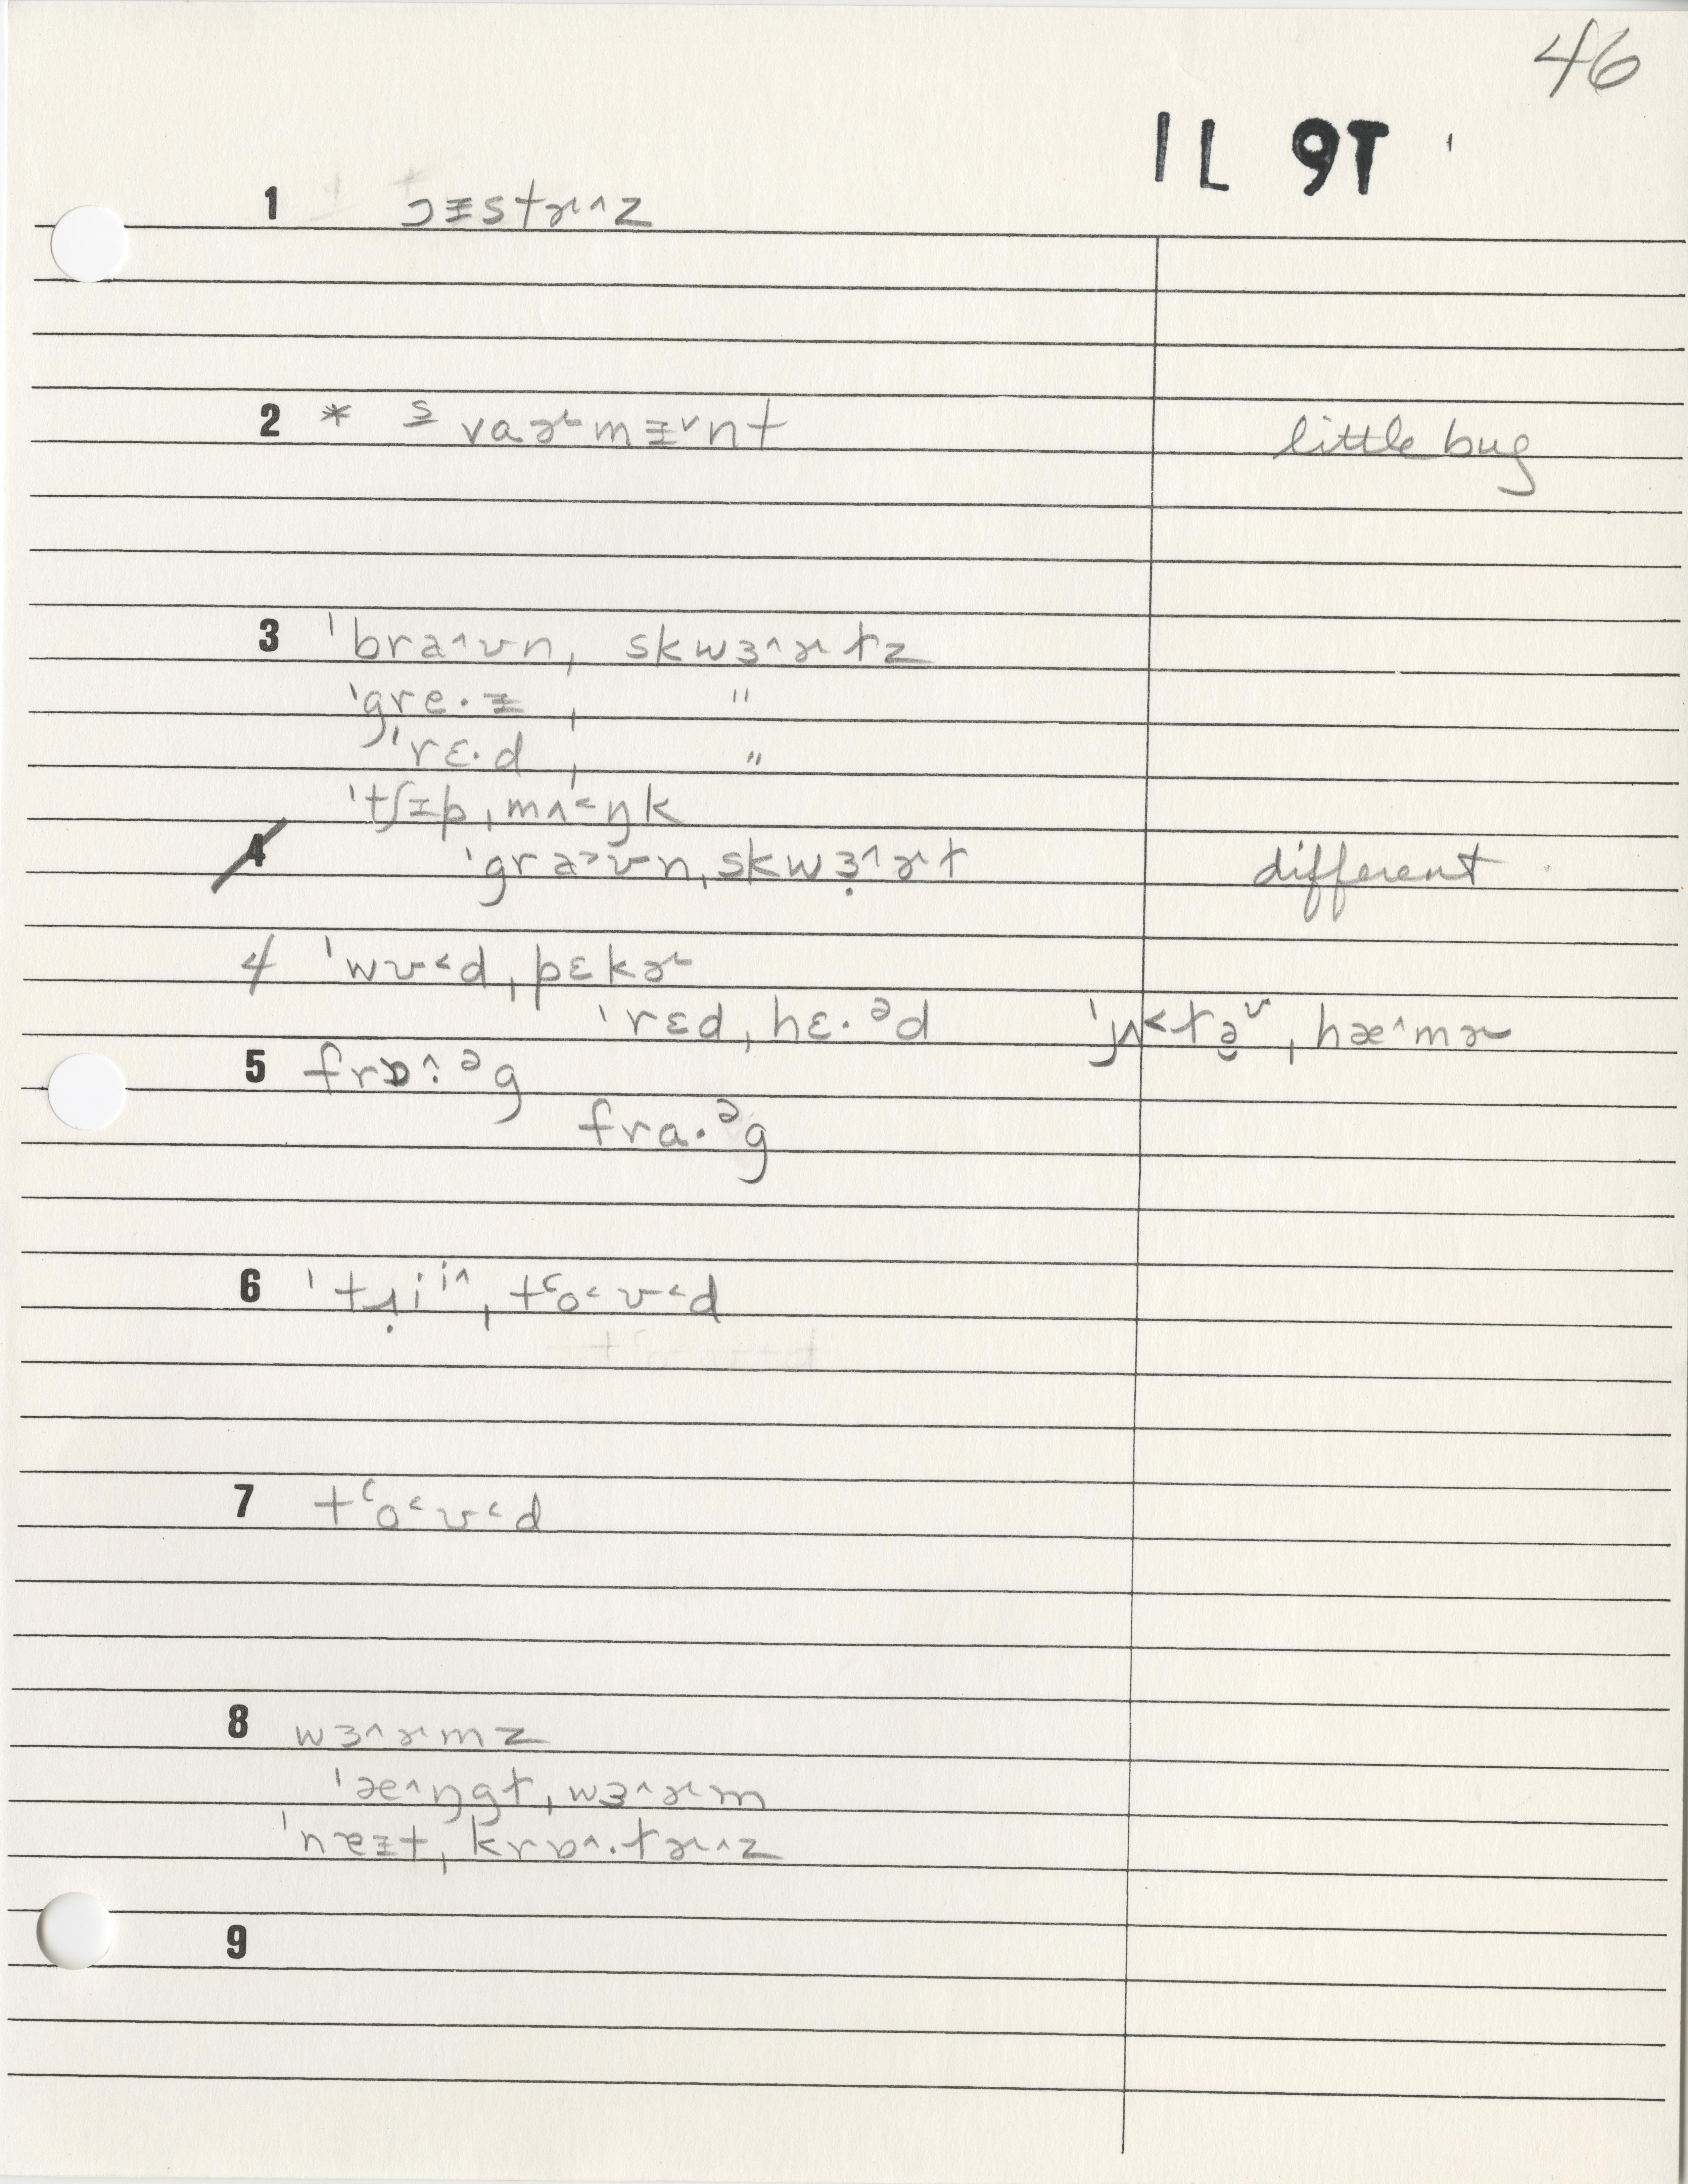 46
IL 9T
1 ɔɪ̵stɚ˄z
2 * s̳ vaɚmɪ̵˅nt little bug
3 ˈbra˄ʊn ˌskwɜ˄ɚɫz
ˈgre·ɪ̵ ˌ "
ˈrɛ·d ˌ "
ˈtʃɪ̵p ˌmʌ˂ŋk
4 ˈgra˃ʊn ˌskwɜ̣˄ɚɫ different
4 ˈwʊ˂d ˌpɛkɚ
ˈrɛd ˌhɛ·ᵊd ˈjʌ˂ɫə̮ᶷ ˌhæ˄mɚ
5 frɒ˄·ᵊg
fra·ᵊg
6 ˈtɹ̣iⁱ˄ ˌtʻo˂ʊ˂d
7 tʻo˂ʊ˂d
8 wɜ˄ɚmz
ˈæ˄ŋgɫ ˌwɜ˄ɚm
ˈnɐɪ̵t ˌkrɒ˄·ɫɚ˄z
9